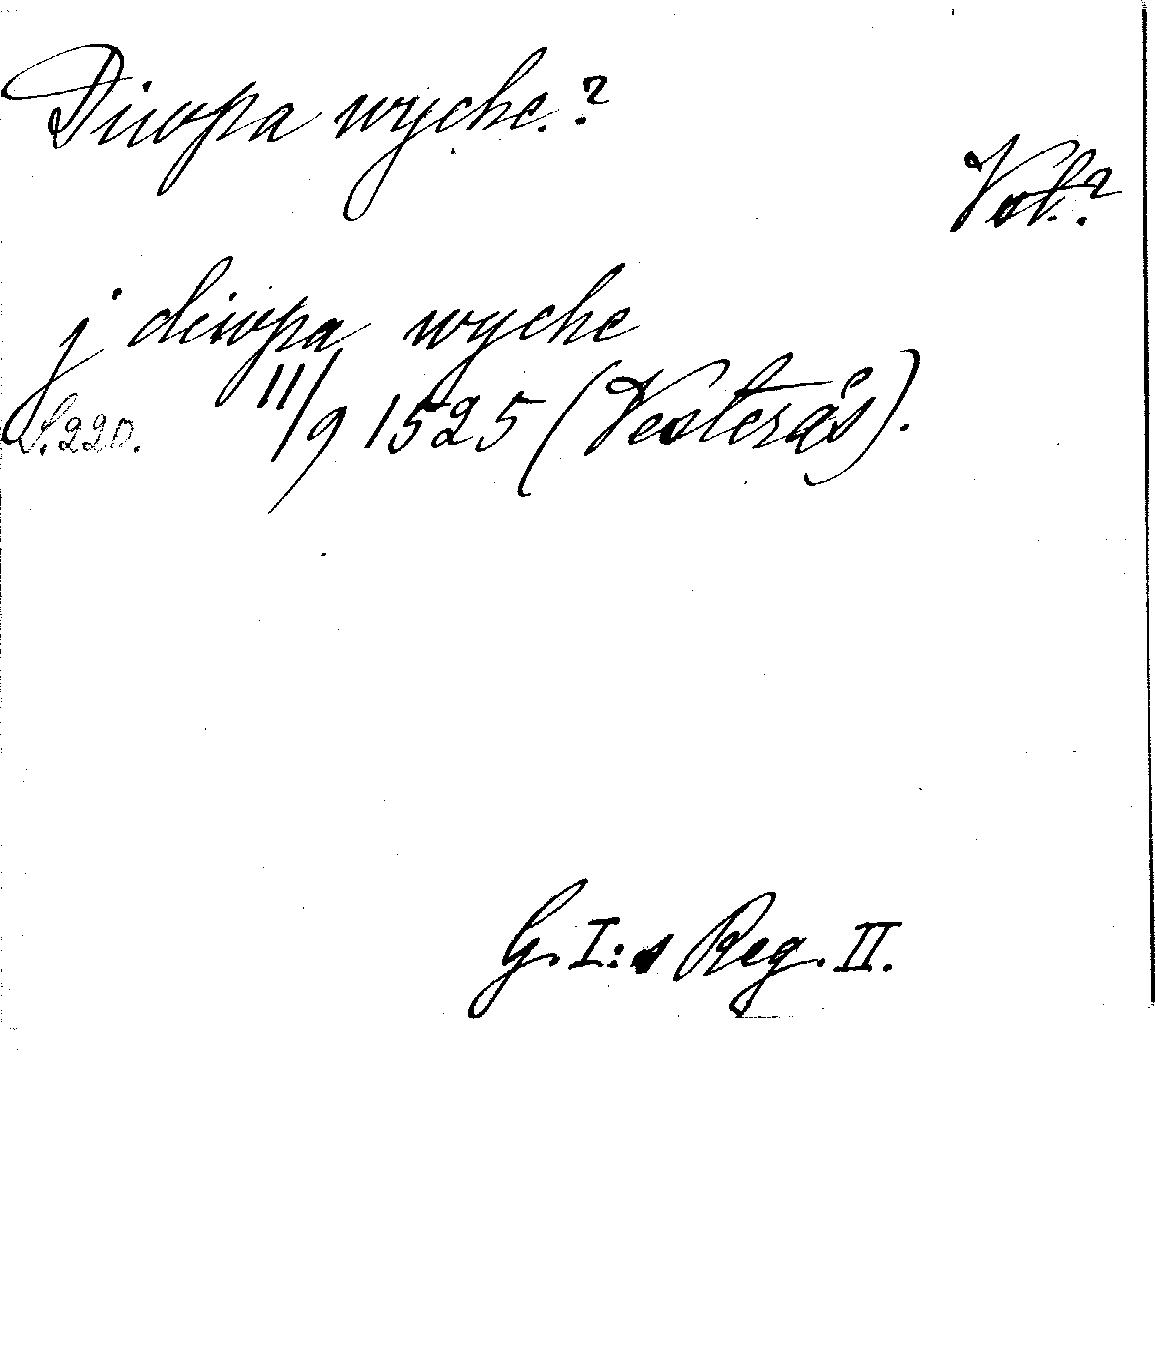 Diwpa wyche.?
Vot.?
j diwpa wyche
S. 220. 11/9 1525 (Vesterås).
G. I:s Reg. II.